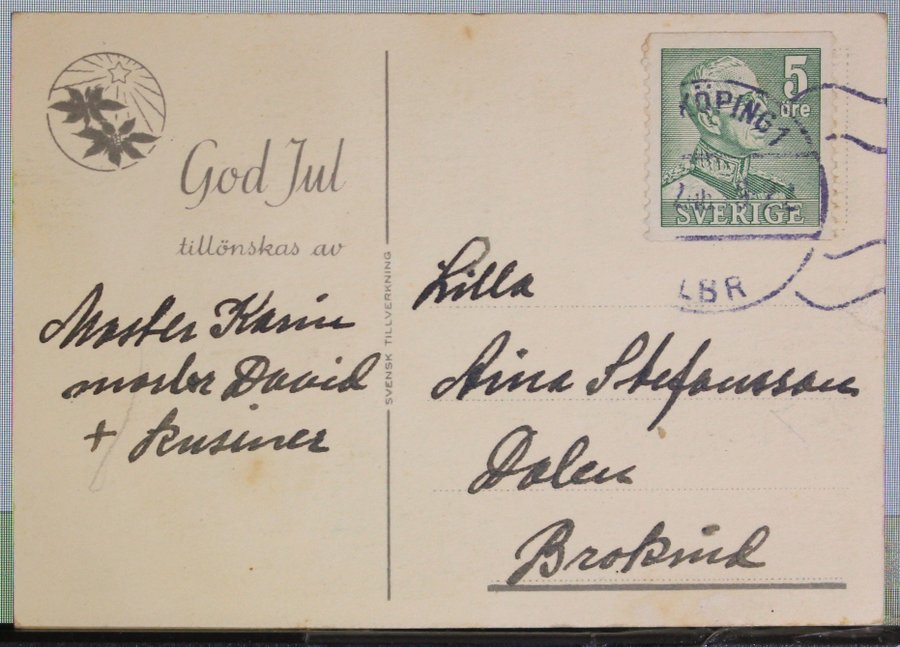 God Jul
tillönskas av
Moster Karin
morbr David
+ kusiner
SVENSK TILLVERKNING
5
öre
SVERIGE
KÖPING 1
LBR
Lilla
Stefansson
Dalen
Brokind